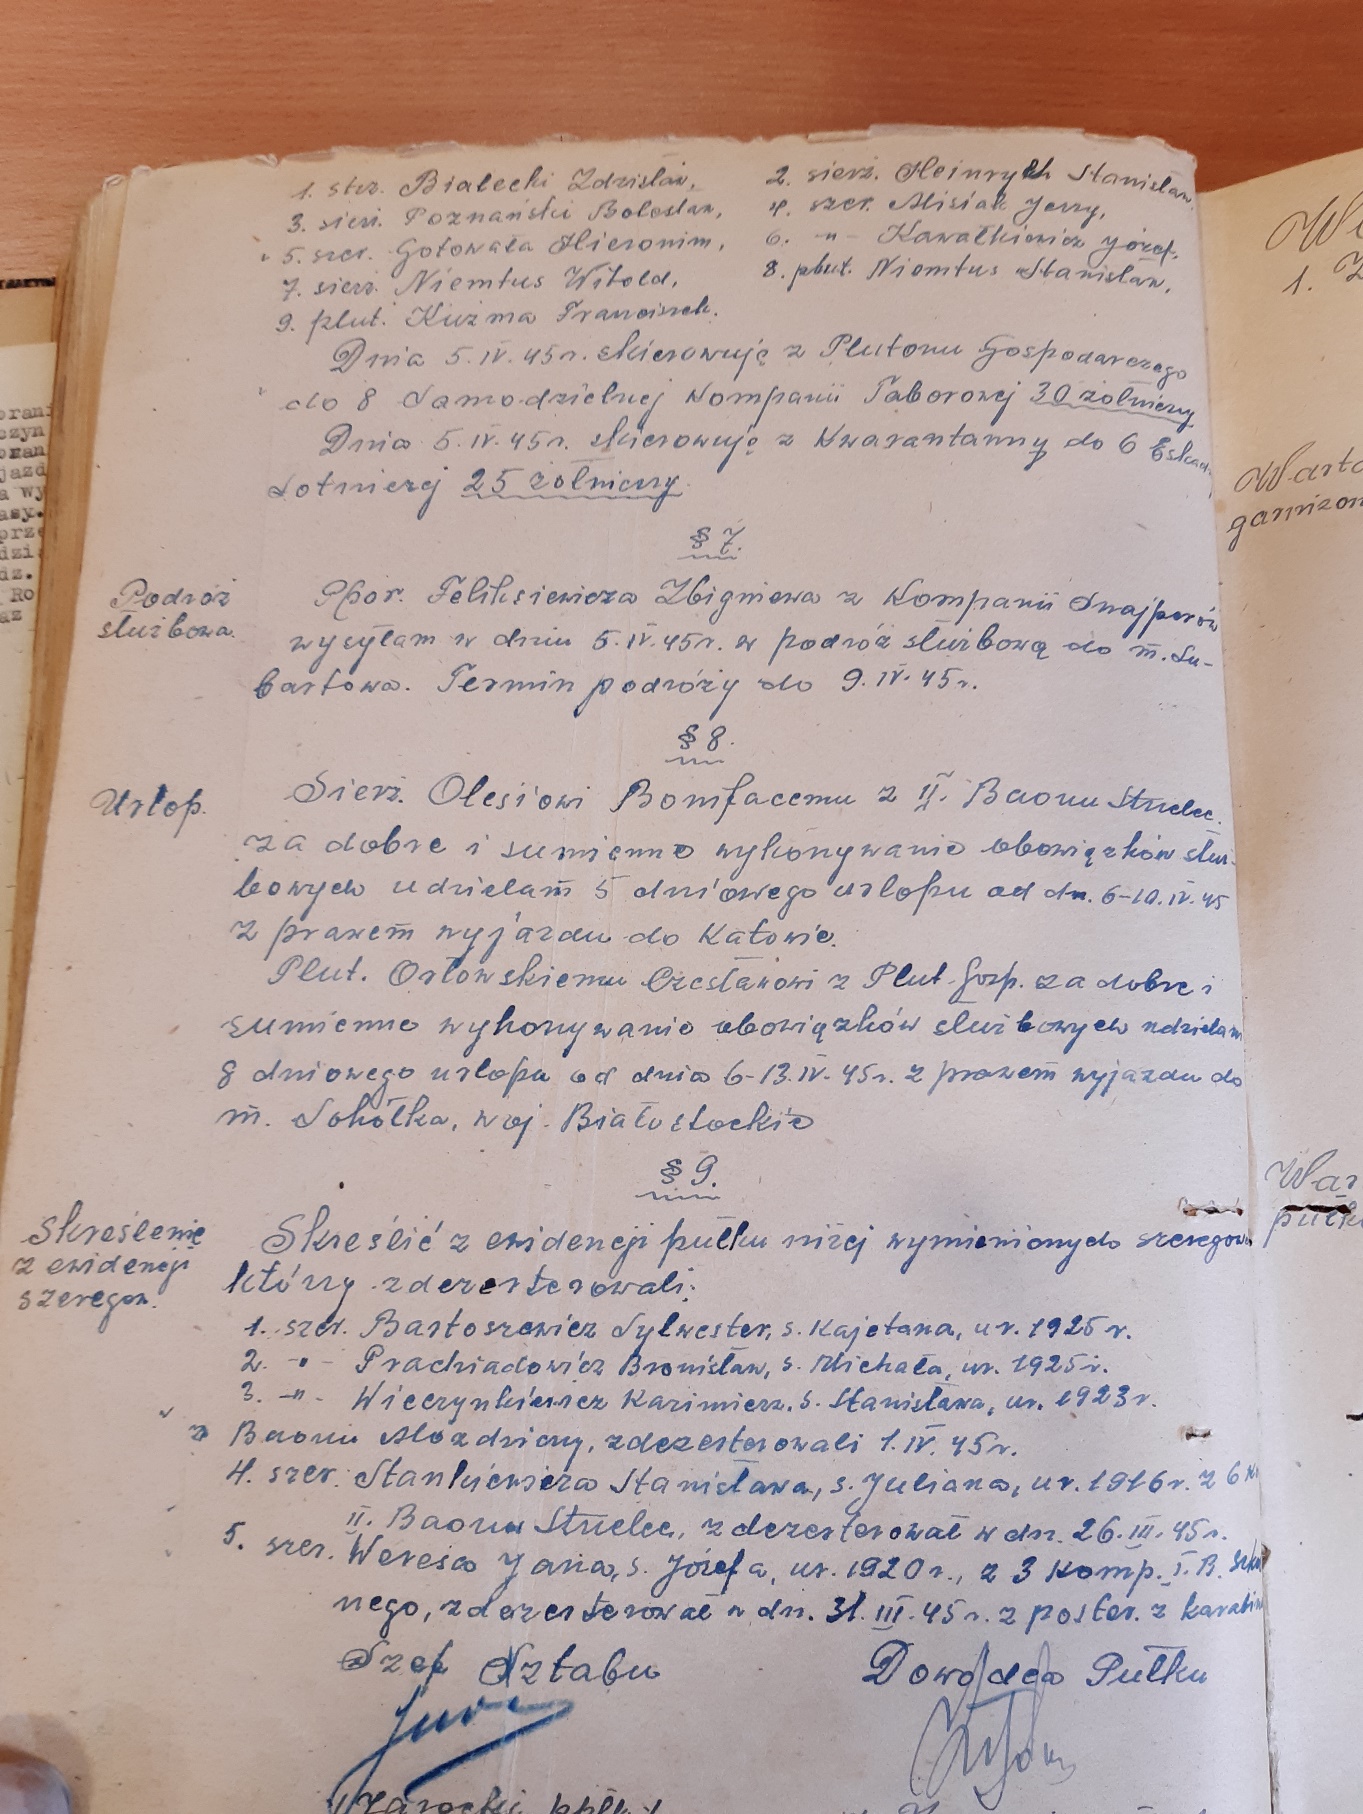 1. strz. Białecki Zdzisław, 2. sierż. Heinrych Stanisław
3. sierż. Poznański Bolesław, 4. szer. Misiak Jerzy,
5. szer. Gotowała Hieronim, 6. -"- Kawałkiewicz Józef,
7. sierż. Niemtus Witold, 8. plut. Niemtus Stanisław,
9. plut. Kuźma Franciszek.
Dnia 5.IV.45r. skierowuję z Plutonu Gospodarczego
do 8 Samodzielnej Kompanii Taborowej 30 żołnierzy
Dnia 5.IV.45r. skierowuję z Kwarantanny do 6 Eskad
Lotniczej 25 żołnierzy.
§ 7.
Podróż
służbowa.
Pchor. Feliksiewicza Zbigniewa z Kompanii Snajperów
wysyłam w dniu 5.IV.45r. w podróż służbową do m. Lu-
bartowa. Termin podróży do 9.IV.45r.
§ 8.
Urlop.
Sierż. Olesiowi Bonifacemu z II. Baonu Strzelec.
za dobre i sumienne wykonywanie obowiązków służ-
bowych udzielam 5 dniowego urlopu od dn. 6-10.IV.45
z prawem wyjazdu do Katowic.
Plut. Orłowskiemu Czesławowi z Plut. Gosp. za dobre i
sumienne wykonywanie obowiązków służbowych udzielam
8 dniowego urlopu od dnia 6-13.IV.45r. z prawem wyjazdu do
m. Sokółka, woj. Białostockie
§ 9.
Skreślenie
z ewidencji
szeregow.
Skreślić z ewidencji pułku niżej wymienionych szeregow
którzy zdezerterowali:
1. szer. Bartoszewicz Sylwester, s. Kajetana, ur. 1925r.
2. -"- Prachiadowicz Bronisław, s. Michała, ur. 1925r.
3. -"- Wieczynkiewicz Kazimierz, s. Stanisława, ur. 1923r.
z Baonu Moździerzy, zdezerterowali 1.IV.45r.
4. szer. Stankiewicza Stanisława, s. Juliana, ur. 1916r. z 6
II. Baonu Strzelec, zdezerterował w dn. 26.III.45r.
5. szer.Weresa Jana, s. Józefa, ur. 1920r., z 3 Komp. I. B.
nego, zdezerterował w dn. 31.III.45r. z poster. z karabin
Szef Sztabu Dowódca Pułku
garnizon